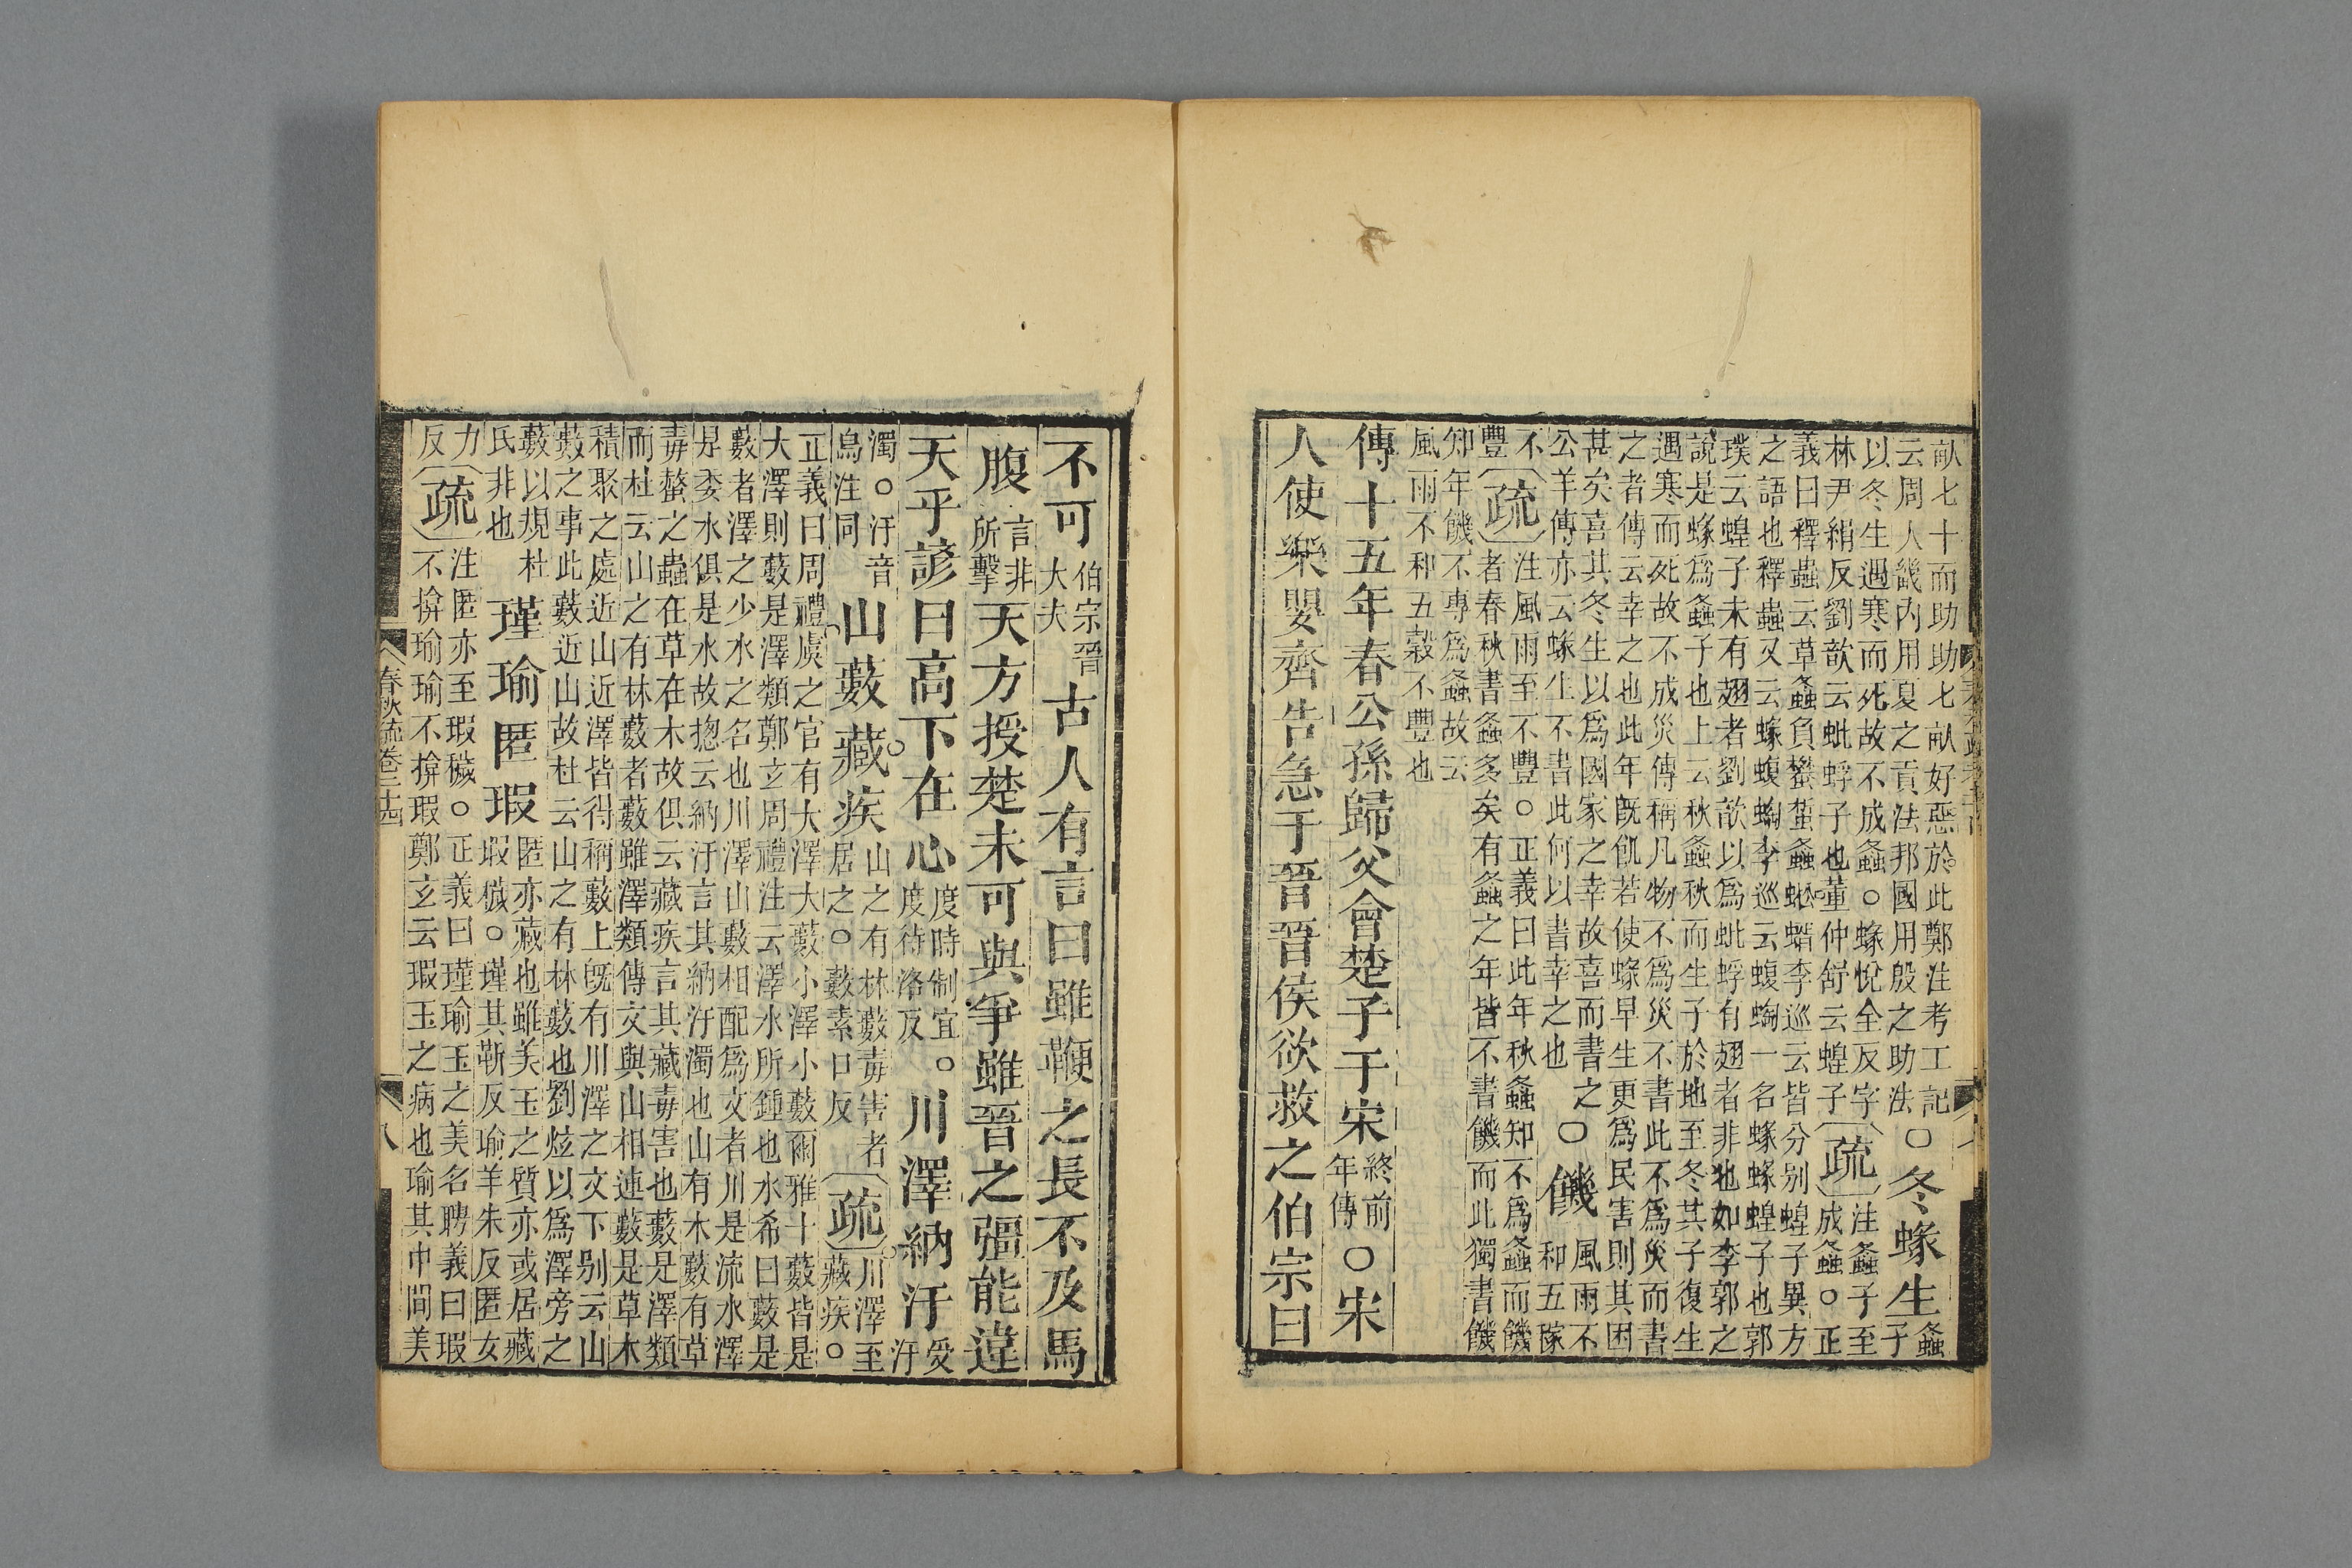 畝七十而助助七畝好惡於此鄭注考工記
云周人畿內用夏之貢法邦國用殷之助法○冬蝝生螽子
以冬生遇寒而死故不成螽○蝝悅全反字
林尹絹反劉歆云蚍蜉子也董仲舒云蝗子〔疏〕注螽子至成螽○正
義曰釋蟲云草螽負蠜蜇螽蚣蝑李巡云皆分别蝗子異方
之語也釋蟲又云蝝蝮蜪李巡云蝮蜪一名蝝蝝蝗子也郭
璞云蝗子未有翅者劉歆以爲蚍蜉有翅者非也如李郭之
說是蝝爲螽子也上云秋螽秋而生子於地至冬其子復生
遇寒而死故不成災傳稱凡物不爲災不書此不爲災而書
之者傳云幸之也此年旣飢若使蝝早生更爲民害則其困
甚矣喜其冬生以爲國家之幸故喜而書之
公羊傳亦云蝝生不書此何以書幸之也○饑風雨不和五稼
不豐〔疏〕注風雨至不豐○正義曰此年秋螽知不爲螽而饑
者春秋書螽多矣有螽之年皆不書饑而此獨書饑
知年饑不專爲螽故云
風雨不和五穀不豐也
傳十五年春公孫歸父會楚子于宋終前年傳○宋
人使樂嬰齊告急于晉晉侯欲救之伯宗曰
不可伯宗晉大夫古人有言曰雖鞭之長不及馬
腹言非所擊天方授楚未可與爭雖晉之彊能違
天乎諺曰高下在心度時制宜。度待洛反川澤納汙受汙
濁○汙音烏注同山藪藏疾山之有林藪毒害者居之○藪素口反〔疏〕川澤至藏疾○
正義曰周禮虞之官有大澤大藪小澤小藪爾雅十藪皆是
大澤則藪是澤類鄭玄周禮注云澤水所鍾也水希曰藪是
藪者澤之少水之名也川澤山藪相配爲文者川是流水澤
是委水俱是水故摠云納汙言其納汙濁也山有木藪有草
毒螫之蟲在草在木故俱云藏疾言其藏毒害也藪是澤類
而杜云山之有林藪者藪雖澤類傳文與山相連藪是草木
積聚之處近山近澤皆得稱藪上旣有川澤之文下别云山
藪之事此藪近山故杜云山之有林藪也劉炫以爲澤旁之
藪以規杜氏非也瑾瑜匿瑕匿亦藏也雖美玉之質亦或居藏瑕穢○瑾其靳反瑜羊朱反匿女
力反〔疏〕注匿亦至瑕穢○正義曰瑾瑜玉之美名聘義曰瑕
不揜瑜瑜不揜瑕鄭玄云瑕玉之病也瑜其中間美
春秋疏卷二十四
八